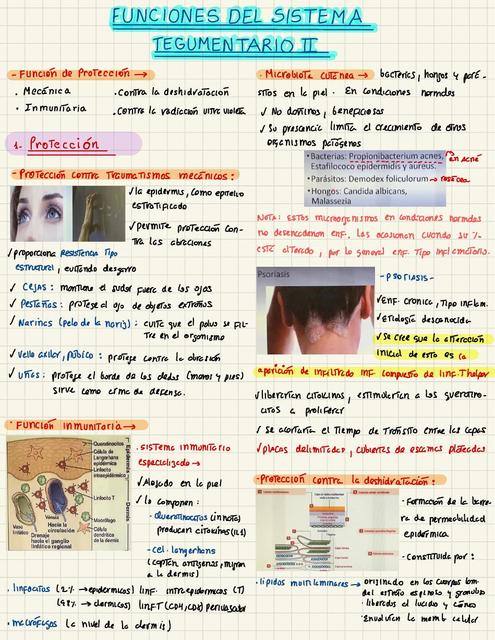 FUNCIONES DEL SISTEMA
TEGUMENTARIO II
- Función de Protección →
. Mecánica
. Inmunitaria
. Contra la deshidratación
. Contra la radiación ultra violeta
1. Protección
- Protección contra Traumatismos mecánicos:
✓ la epidermis, como epitelio
estratificado
✓ Permite protección con-
tra las abraciones
✓ proporciona resistencia tipo
estructural, evitando desgarro
✓ Cejas: mantiene el sudor fuera de los ojos
✓ Pestañas: protege al ojo de objetos extraños
✓ Narinas (pelo de la nariz): evita que el polvo se fil-
tre en el organismo
✓ Vello axilar, púbico: protege contra la abrasión
✓ uñas: protege el borde de los dedos (manos y pies)
sirve como arma de defensa.
. Función inmunitaria →
Queratinocitos
Célula de
Langerhans
epidérmica
Linfocito
intraepidérmico
Linfocito T
Macrófago
Célula
dendrítica de
la dermis
Vaso
linfático
Vénula
Hacia la
circulación
Drenaje
hacia el ganglio
linfático regional
Epidermis
Dermis
. Sistema inmunitario
especializado →
✓ Alojado en la piel
✓ lo componen:
- Queratinocitos (innata)
producen citocinas (IL1)
- cel. langerhans
(captan antígenos, migran
a la dermis)
. linfocitos (2% → epidérmicos) linf. intraepidérmicos (T)
(98% → dermicos) linf.T (CD4, CD8) perivascular
. macrófagos (a nivel de la dermis)
. Microbiota cutánea → bacterias, hongos y pará-
sitos en la piel. En condiciones normales
✓ No dañinos, beneficiosos
✓ Su presencia limita el crecimiento de otros
organismos patógenos
• Bacterias: Propionibacterium acnes, → en ACNÉ
Estafilococo epidermidis y aureus.
• Parásitos: Demodex foliculorum → rosácea
• Hongos: Candida albicans,
Malassezia
NOTA: Estos microorganismos en condiciones normales
no desencadenan enf. Las ocasionan cuando su %
está alterado, por lo general enf. Tipo inflamatorio.
Psoriasis
- PSORIASIS -
✓ Enf. cronica, Tipo inflam.
✓ Etiología desconocida
✓ Se cree que la alteración
inicial de esto es la
aparición de infiltrado inf compuesto de linf. T helper
✓ liberarían citocinas, estimularían a los queratino-
citos a proliferar
✓ se acortaría el Tiempo de Tránsito entre las capas
✓ placas delimitadas, cubiertas de escamas plateadas
- Protección contra la deshidratación:
- Formación de la barre-
ra de permeabilidad
epidérmica
- Constituida por:
. lípidos multilaminares → . originado en los cuerpos lam.
del estrato espinoso y granuloso
. liberados al lucido y córneo
. Envuelven la memb celular